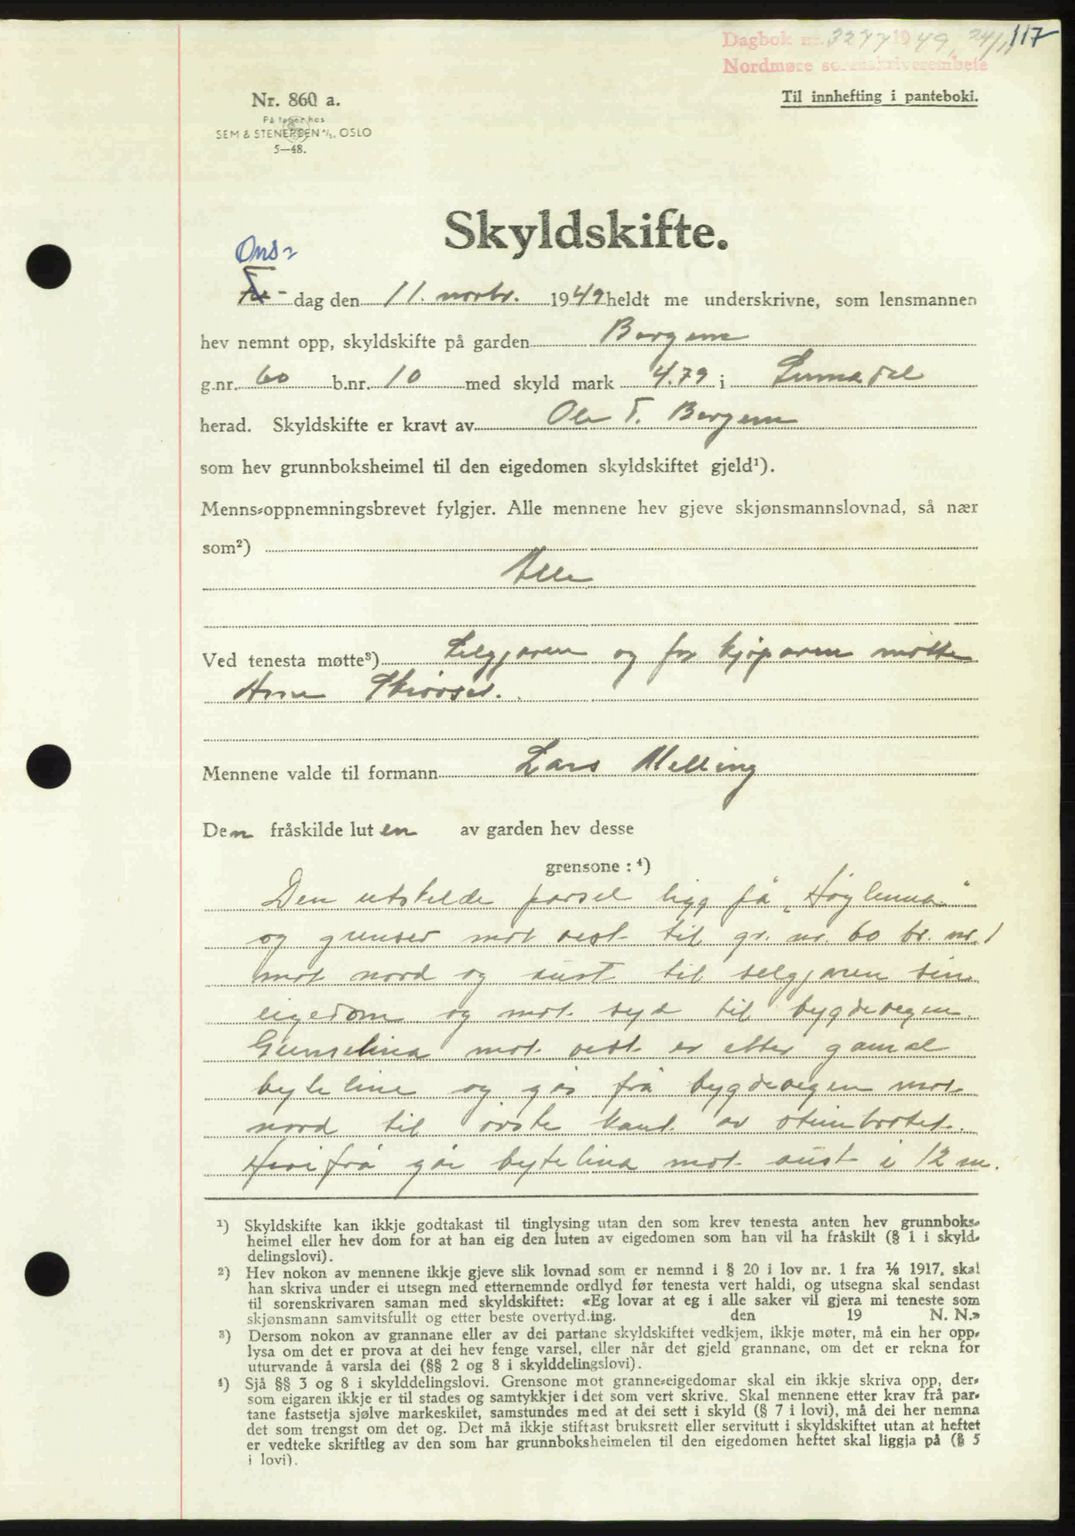 Dagbok nr. 3277 1949, 24/11 117
Nordmøre sorenskriverembete
Til innhefting i panteboki.
Nr. 860 a.
På lager hos
SEM & STENERSEN A/S, OSLO
5—48.
Skyldskifte.
Ons-
dag den 11. novbr. 1949 heldt me underskrivne, som lensmannen
hev nemnt opp, skyldskifte på garden Bergem
g.nr. 60 b.nr. 10 med skyld mark 4.79 i Surnadal
herad. Skyldskifte er kravt av Ole T. Bergem
som hev grunnboksheimel til den eigedomen skyldskiftet gjeld¹).
Menns-oppnemningsbrevet fylgjer. Alle mennene hev gjeve skjønsmannslovnad, så nær
som²)
Alle
Ved tenesta møtte³) Seljaren og for kjøparen møtte
Arne
Mennene valde til formann Lars Melling
Den fråskilde luten av garden hev desse
grensone : ⁴)
Den utskilde parsel ligg på "Høglunna"
og grenser mot vest til gr. nr. 60 br. nr. 1
mot nord og aust til selgjaren sin
eigedom og mot syd til bygdevegen.
Grenselina mot vest er etter gamal
byteline og går frå bygdevegen mot
nord til øvste kant av steinbrotet.
Herifrå går bytelina mot aust i 12 m.
¹) Skyldskifte kan ikkje godtakast til tinglysing utan den som krev tenesta anten hev grunnboks-
heimel eller hev dom for at han eig den luten av eigedomen som han vil ha fråskilt (§ 1 i skyld-
delingslovi).
²) Hev nokon av mennene ikkje gjeve slik lovnad som er nemnd i § 20 i lov nr. 1 fra 1/6 1917, skal
han skriva under ei utsegn med etternemnde ordlyd før tenesta vert haldi, og utsegna skal sendast
til sorenskrivaren saman med skyldskiftet: «Eg lovar at eg i alle saker vil gjera mi teneste som
skjønsmann samvitsfullt og etter beste overtyding. den 19 N. N.»
³) Dersom nokon av grannane eller av dei partane skyldskiftet vedkjem, ikkje møter, må ein her opp-
lysa om det er prova at dei hev fenge varsel, eller når det gjeld grannane, om det er rekna for
uturvande å varsla dei (§§ 2 og 8 i skylddelingslovi).
⁴) Sjå §§ 3 og 8 i skylddelingslovi. Grensone mot granne-eigedomar skal ein ikkje skriva opp, der-
som eigaren ikkje er til stades og samtykkjer i det som vert skrive. Skal mennene etter krav frå par-
tane fastsetja sjølve markeskilet, samstundes med at dei sett i skyld (§ 7 i lovi), må dei her nemna
det som trengst om det og. Det må ikkje stiftast bruksrett eller servitutt i skyldskiftet utan at heftet
er vedteke skriftleg av den som har grunnboksheimelen til den eigedomen heftet skal liggja på (§ 5
i lovi).